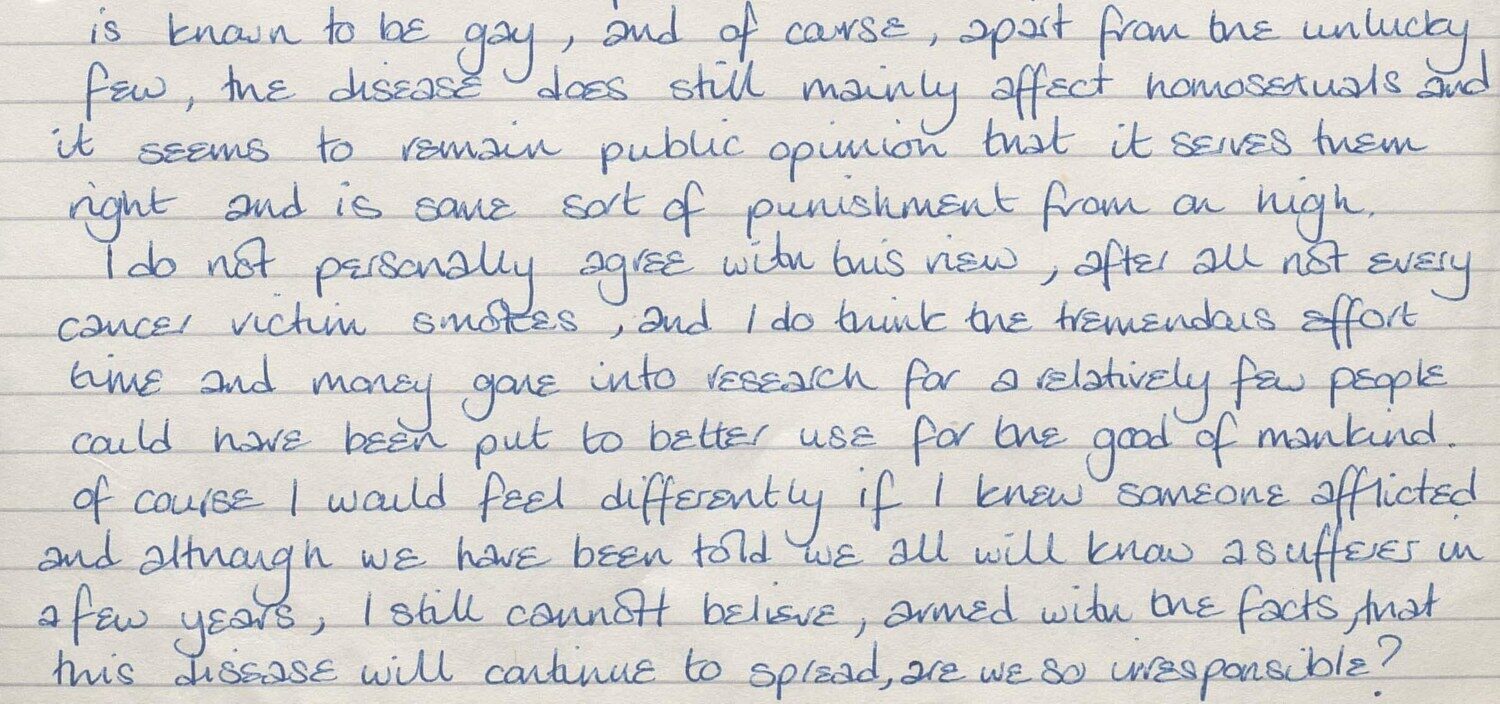 is known to be gay, and of course, apart from the unlucky
few, the disease does still mainly affect homosexuals and
it seems to remain public opinion that it serves them
right and is some sort of punishment from on high.
I do not personally agree with this view, after all not every
cancer victim smokes, and I do think the tremendous effort
time and money gone into research for a relatively few people
could have been put to better use for the good of mankind.
Of course I would feel differently if I knew someone afflicted
and although we have been told we all will know a sufferer in
a few years, I still cannot believe, armed with the facts, that
this disease will continue to spread, are we so irresponsible?